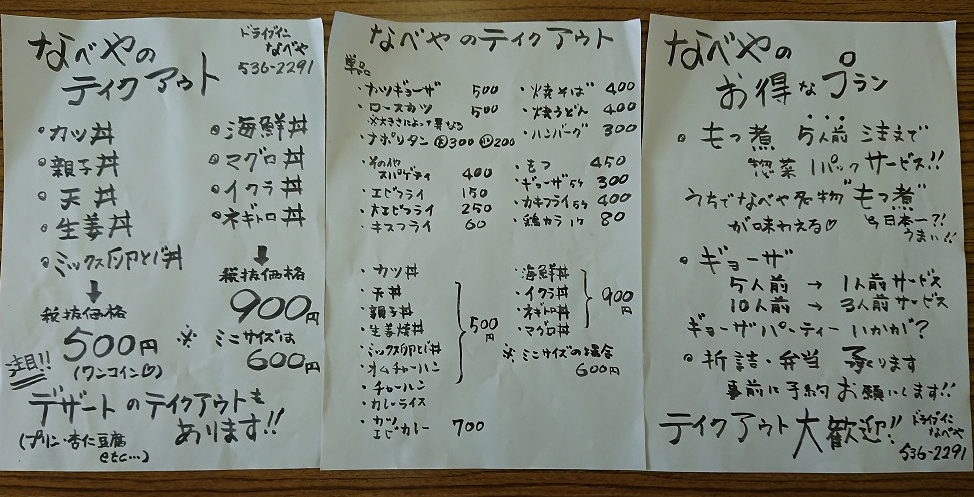 なべやの
テイクアウト
ドライブイン
なべや
536-2291
・カツ丼
・親子丼
・天丼
・生姜丼
・ミックス卵とじ丼
↓
税抜価格
500円
(ワンコイン♡)
注目!!
・海鮮丼
・マグロ丼
・イクラ丼
・ネギトロ丼
↓
税抜価格
900円
※ ミニサイズは
600円
デザートのテイクアウトも
あります!!
(プリン・杏仁豆腐
etc…)
なべやのテイクアウト
単品
・ナツギョーザ 500
・ロースカツ 500
※大きさによって異なる
・ナポリタン 大300 小200
・その他
スパゲティ 400
・エビフライ 150
・大エビフライ 250
・キスフライ 60
・焼そば 400
・焼うどん 400
・ハンバーグ 300
・もつ 450
・ギョーザ5ケ 300
・カキフライ5ケ 400
・鶏カラ1ケ 80
・カツ丼
・天丼
・親子丼
・生姜焼丼
・ミックス卵とじ丼
・オムチャーハン
・チャーハン
・カレーライス
500円
・カツ
エビカレー 700
・海鮮丼
・イクラ丼
・ネギトロ丼
・マグロ丼
900円
※ミニサイズの場合
600円
なべやの
お得なプラン
・もつ煮 5人前 注文で
惣菜 1パックサービス!!
うちでなべや名物"もつ煮"
が味わえる♡
日本一?!
うまい!!
・ギョーザ
5人前 → 1人前サービス
10人前 → 3人前サービス
ギョーザパーティーいかが?
・折詰・弁当 承ります
事前に予約お願いします!!
テイクアウト大歓迎!!
ドライブイン
なべや
536-2291